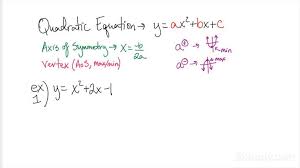 Quadratic Equation → y = ax² + bx + c
Axis of Symmetry → x = -b/2a
Vertex (AoS, max/min)
a⊕ → min
a⊖ → max
ex 1) y = x² + 2x - 1